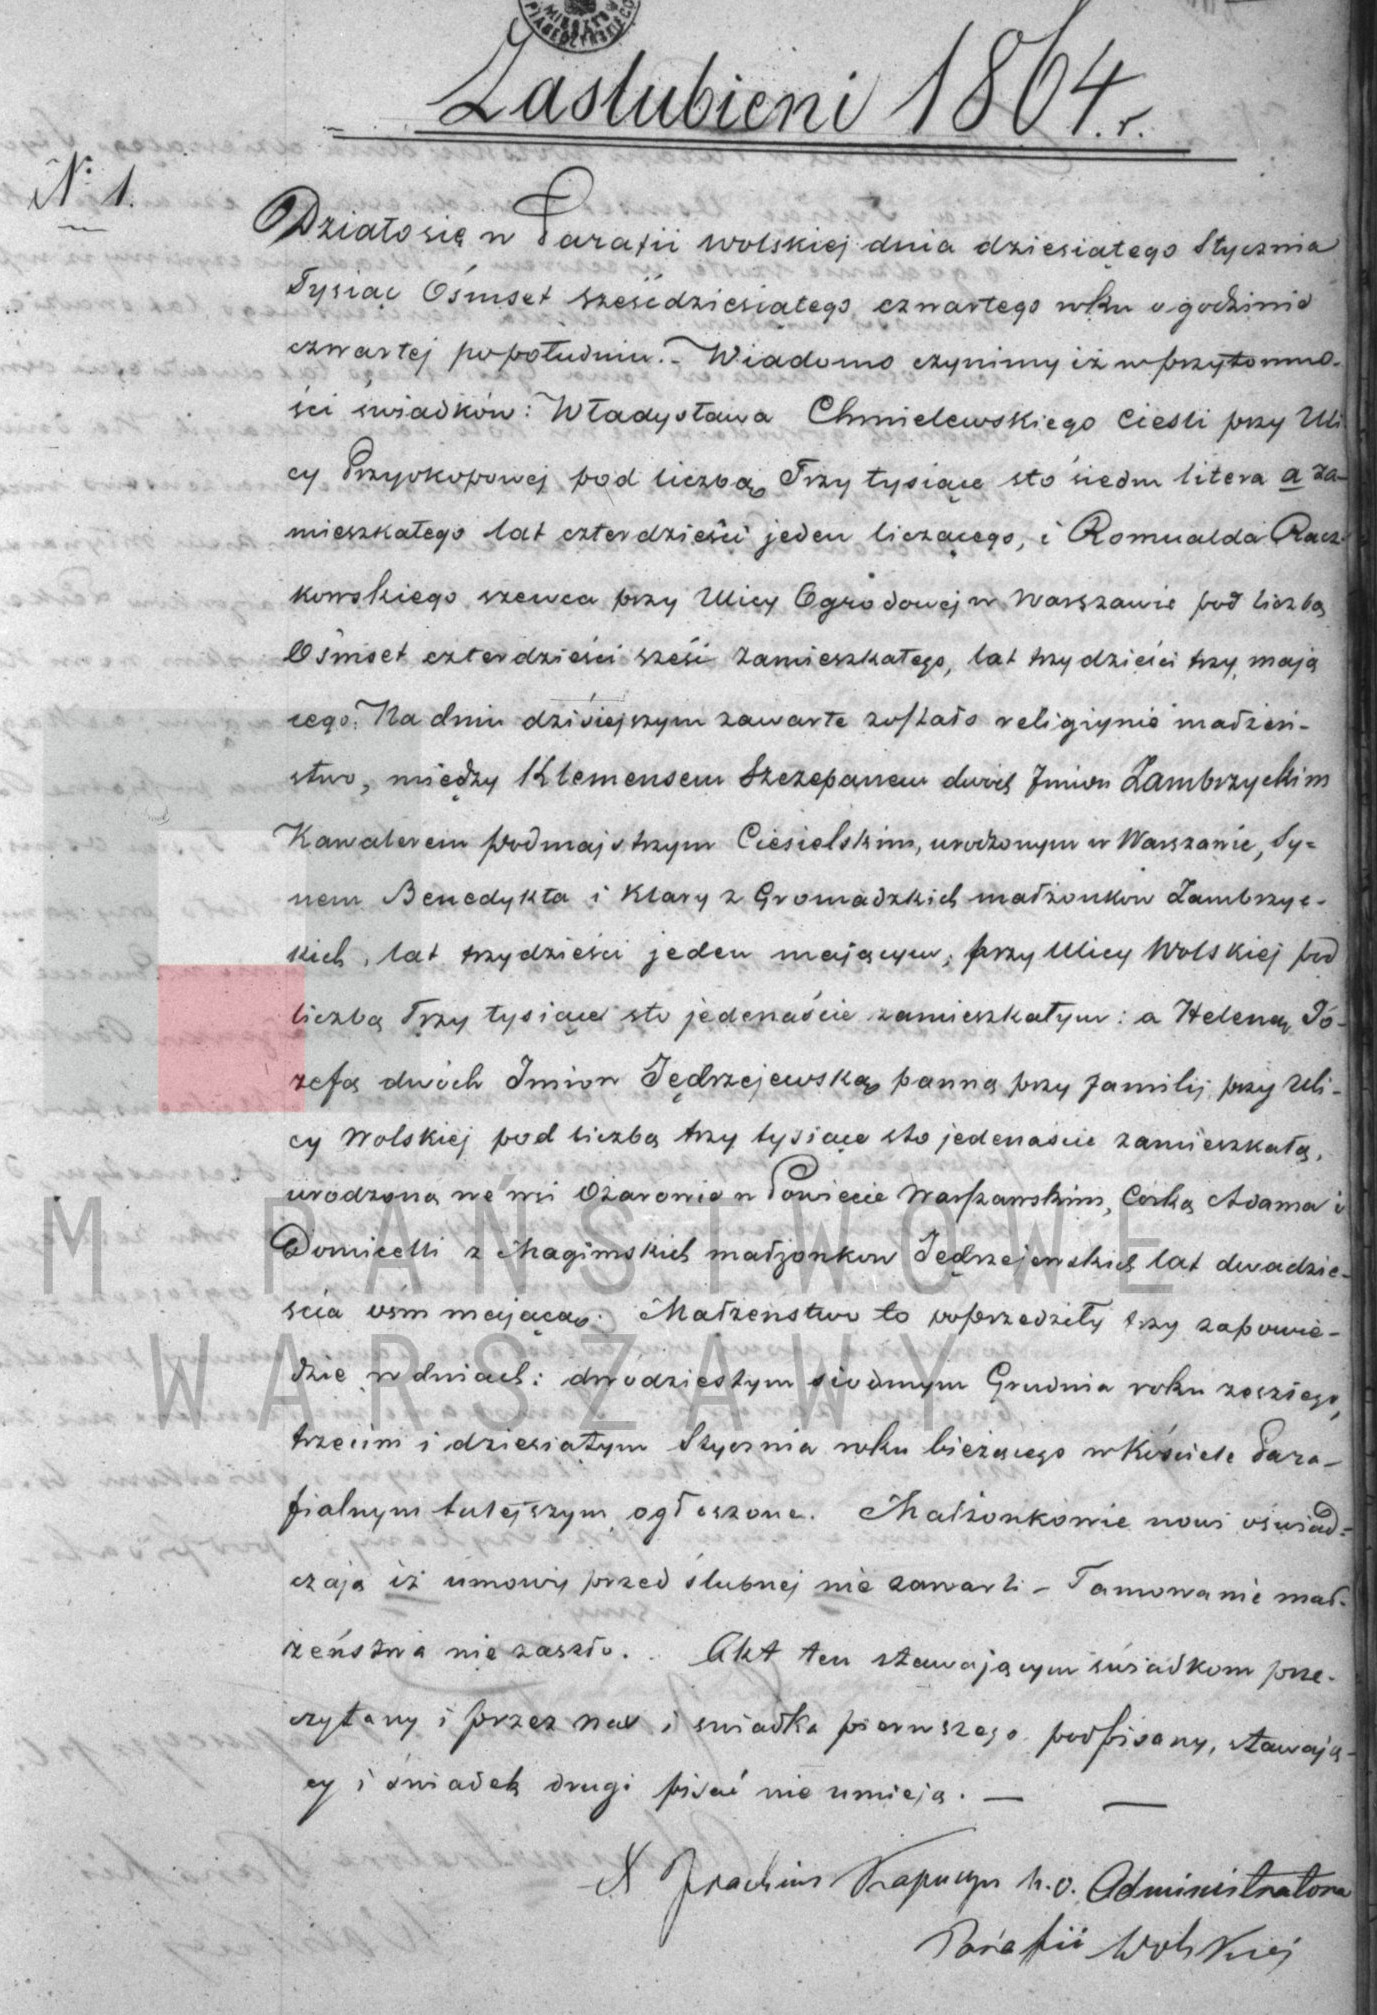 Zaslubieni 1864. r.
N: 1.
Działo się w Parafii Wolskiej dnia dziesiątego Stycznia
Tysiąc Ośmset sześćdziesiątego czwartego roku o godzinie
czwartej popołudniu. – Wiadomo czynimy iż w przytomno-
ści świadków: Władysława Chmielewskiego Cieśli przy Uli
cy Przyokopowej pod liczbą Trzy tysiące sto siedm litera a za-
mieszkałego lat czterdzieści jeden liczącego, i Romualda Racz-
kowskiego szewca przy Ulicy Ogrodowej w Warszawie pod liczbą
Ośmset czterdzieści sześć zamieszkałego, lat trzydzieści trzy mają
cego. Na dniu dzisiejszym zawarte zostało religijnie małżeń-
stwo, między Klemensem Szczepanem dwóch Imion Zambrzyckim
Kawalerem podmajstrzym Ciesielskim, urodzonym w Warszawie, Sy-
nem Benedykta i Klary z Gromadzkich małżonków Zambrzyc-
kich, lat trzydzieści jeden mającym, przy Ulicy Wolskiej pod
liczbą Trzy tysiące sto jedenaście zamieszkałym: a Heleną Jó-
zefą dwóch Imion Jędrzejewską panną przy familij przy Uli-
cy Wolskiej pod liczbą trzy tysiące sto jedenaście zamieszkałą,
urodzoną we wsi Ożarowie w Powiecie Warszawskim, Corką Adama i
Domicelli z Magimskich małżonkow Jędrzejewskich lat dwadzie-
ścia ośm mającą. Małżeństwo to poprzedziły trzy zapowie-
dzie w dniach: dwudziestym siódmym Grudnia roku zeszłego,
trzecim i dziesiątym Stycznia roku bieżącego w Kościele Para-
fialnym tutejszym ogłoszone. Małżonkowie nowi oświad-
czają iż umowy przed ślubnej nie zawarli – Tamowanie mał-
żeństwa nie zaszło. Akt ten stawającym świadkom prze-
czytany i przez nas i świadka pierwszego podpisany, stawają-
cy i świadek drugi pisać nie umieją. —
X Kapucyn w. o. Administratora
Parafii Wolskiej
M PAŃSTWOWE
WARSZAWY